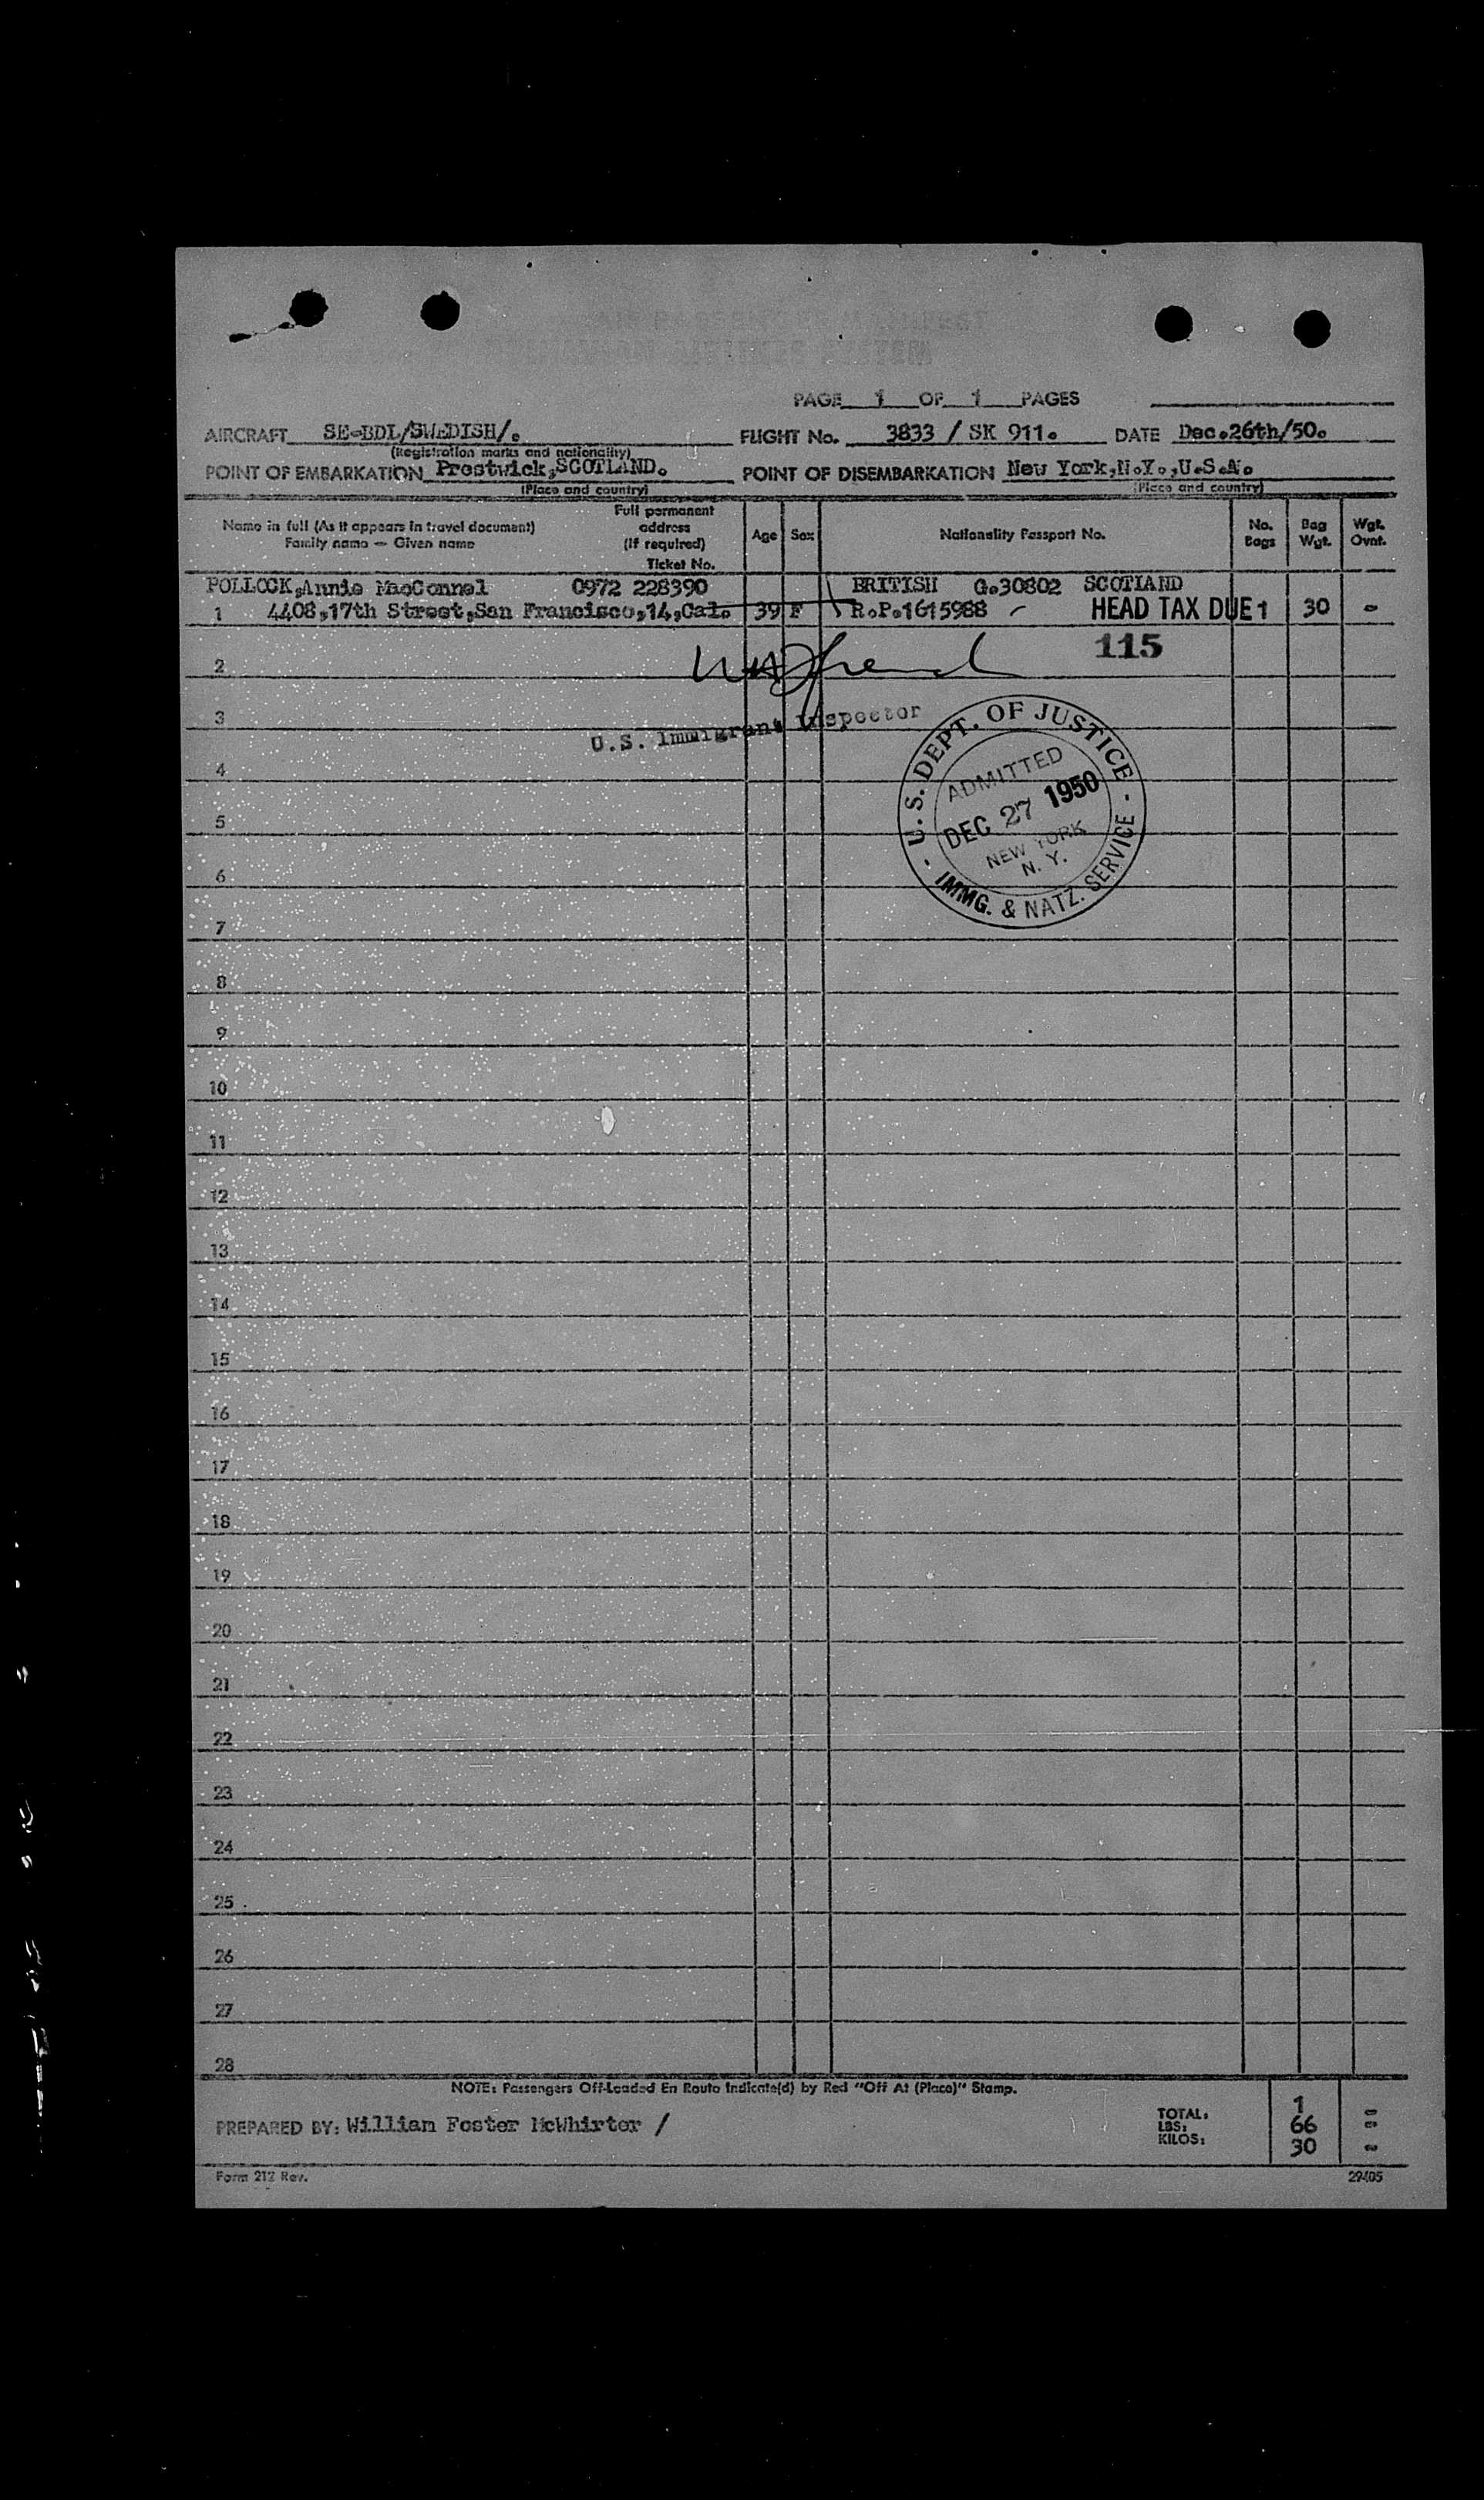 PAGE 1 OF 1 PAGES
AIRCRAFT SE-BDL/SWEDISH/. FLIGHT No. 3833 / SK 911. DATE Dec.26th/50.
(Registration marks and nationality)
POINT OF EMBARKATION Prestwick,SCOTLAND. POINT OF DISEMBARKATION New York,N.Y.,U.S.A.
(Place and country) (Place and country)
Name in full (As it appears in travel document) Family name — Given name Full permanent address (If required) Ticket No. Age Sex Nationality Passport No. No. Bags Bag Wgt. Wgt. Ovnt.
POLLOCK,Annie MacConnel 0972 228390 BRITISH G.30802 SCOTLAND
1 4408,17th Street,San Francisco,14,Cal. 39 F R.P.1615988 - HEAD TAX DUE 1 30 -
115
2
U.S. Immigrant Inspector
3
U.S. DEPT. OF JUSTICE
ADMITTED
DEC 27 1950
NEW YORK
N. Y.
IMMG. & NATZ. SERVICE
4
5
6
7
8
9
10
11
12
13
14
15
16
17
18
19
20
21
22
23
24
25
26
27
28
NOTE: Passengers Off-Loaded En Route Indicate(d) by Red "Off At (Place)" Stamp.
PREPARED BY: William Foster McWhirter /
TOTAL: 1 -
LBS: 66 -
KILOS: 30 -
Form 212 Rev. 29405